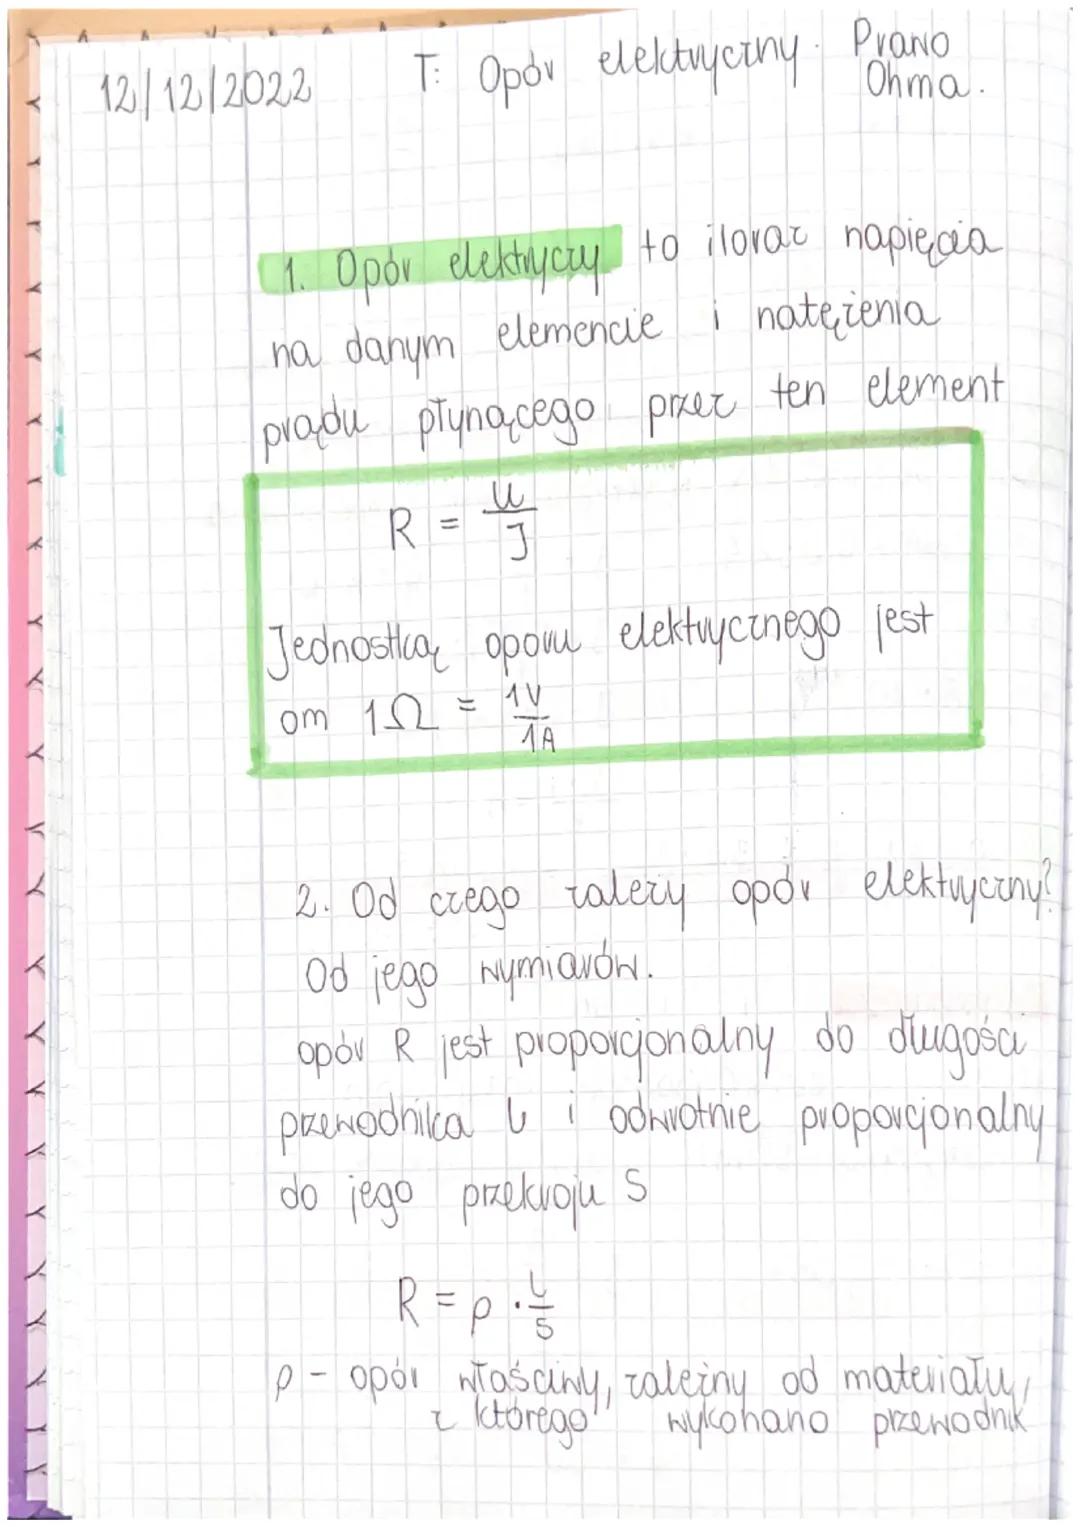 12/12/2022 T: Opór elektryczny. Prawo
Ohma.
1. Opór elektryczy to iloraz napięcia
na danym elemencie i natężenia
prądu płynącego przez ten element
R = U/J
Jednostką oporu elektrycznego jest
om 1Ω = 1V/1A
2. Od czego zależy opór elektryczny?
Od jego wymiarów.
opór R jest proporcjonalny do długości
przewodnika l i odwrotnie proporcjonalny
do jego przekroju S
R = ρ · l/S
ρ - opór właściwy, zależny od materiału,
z którego wykonano przewodnik